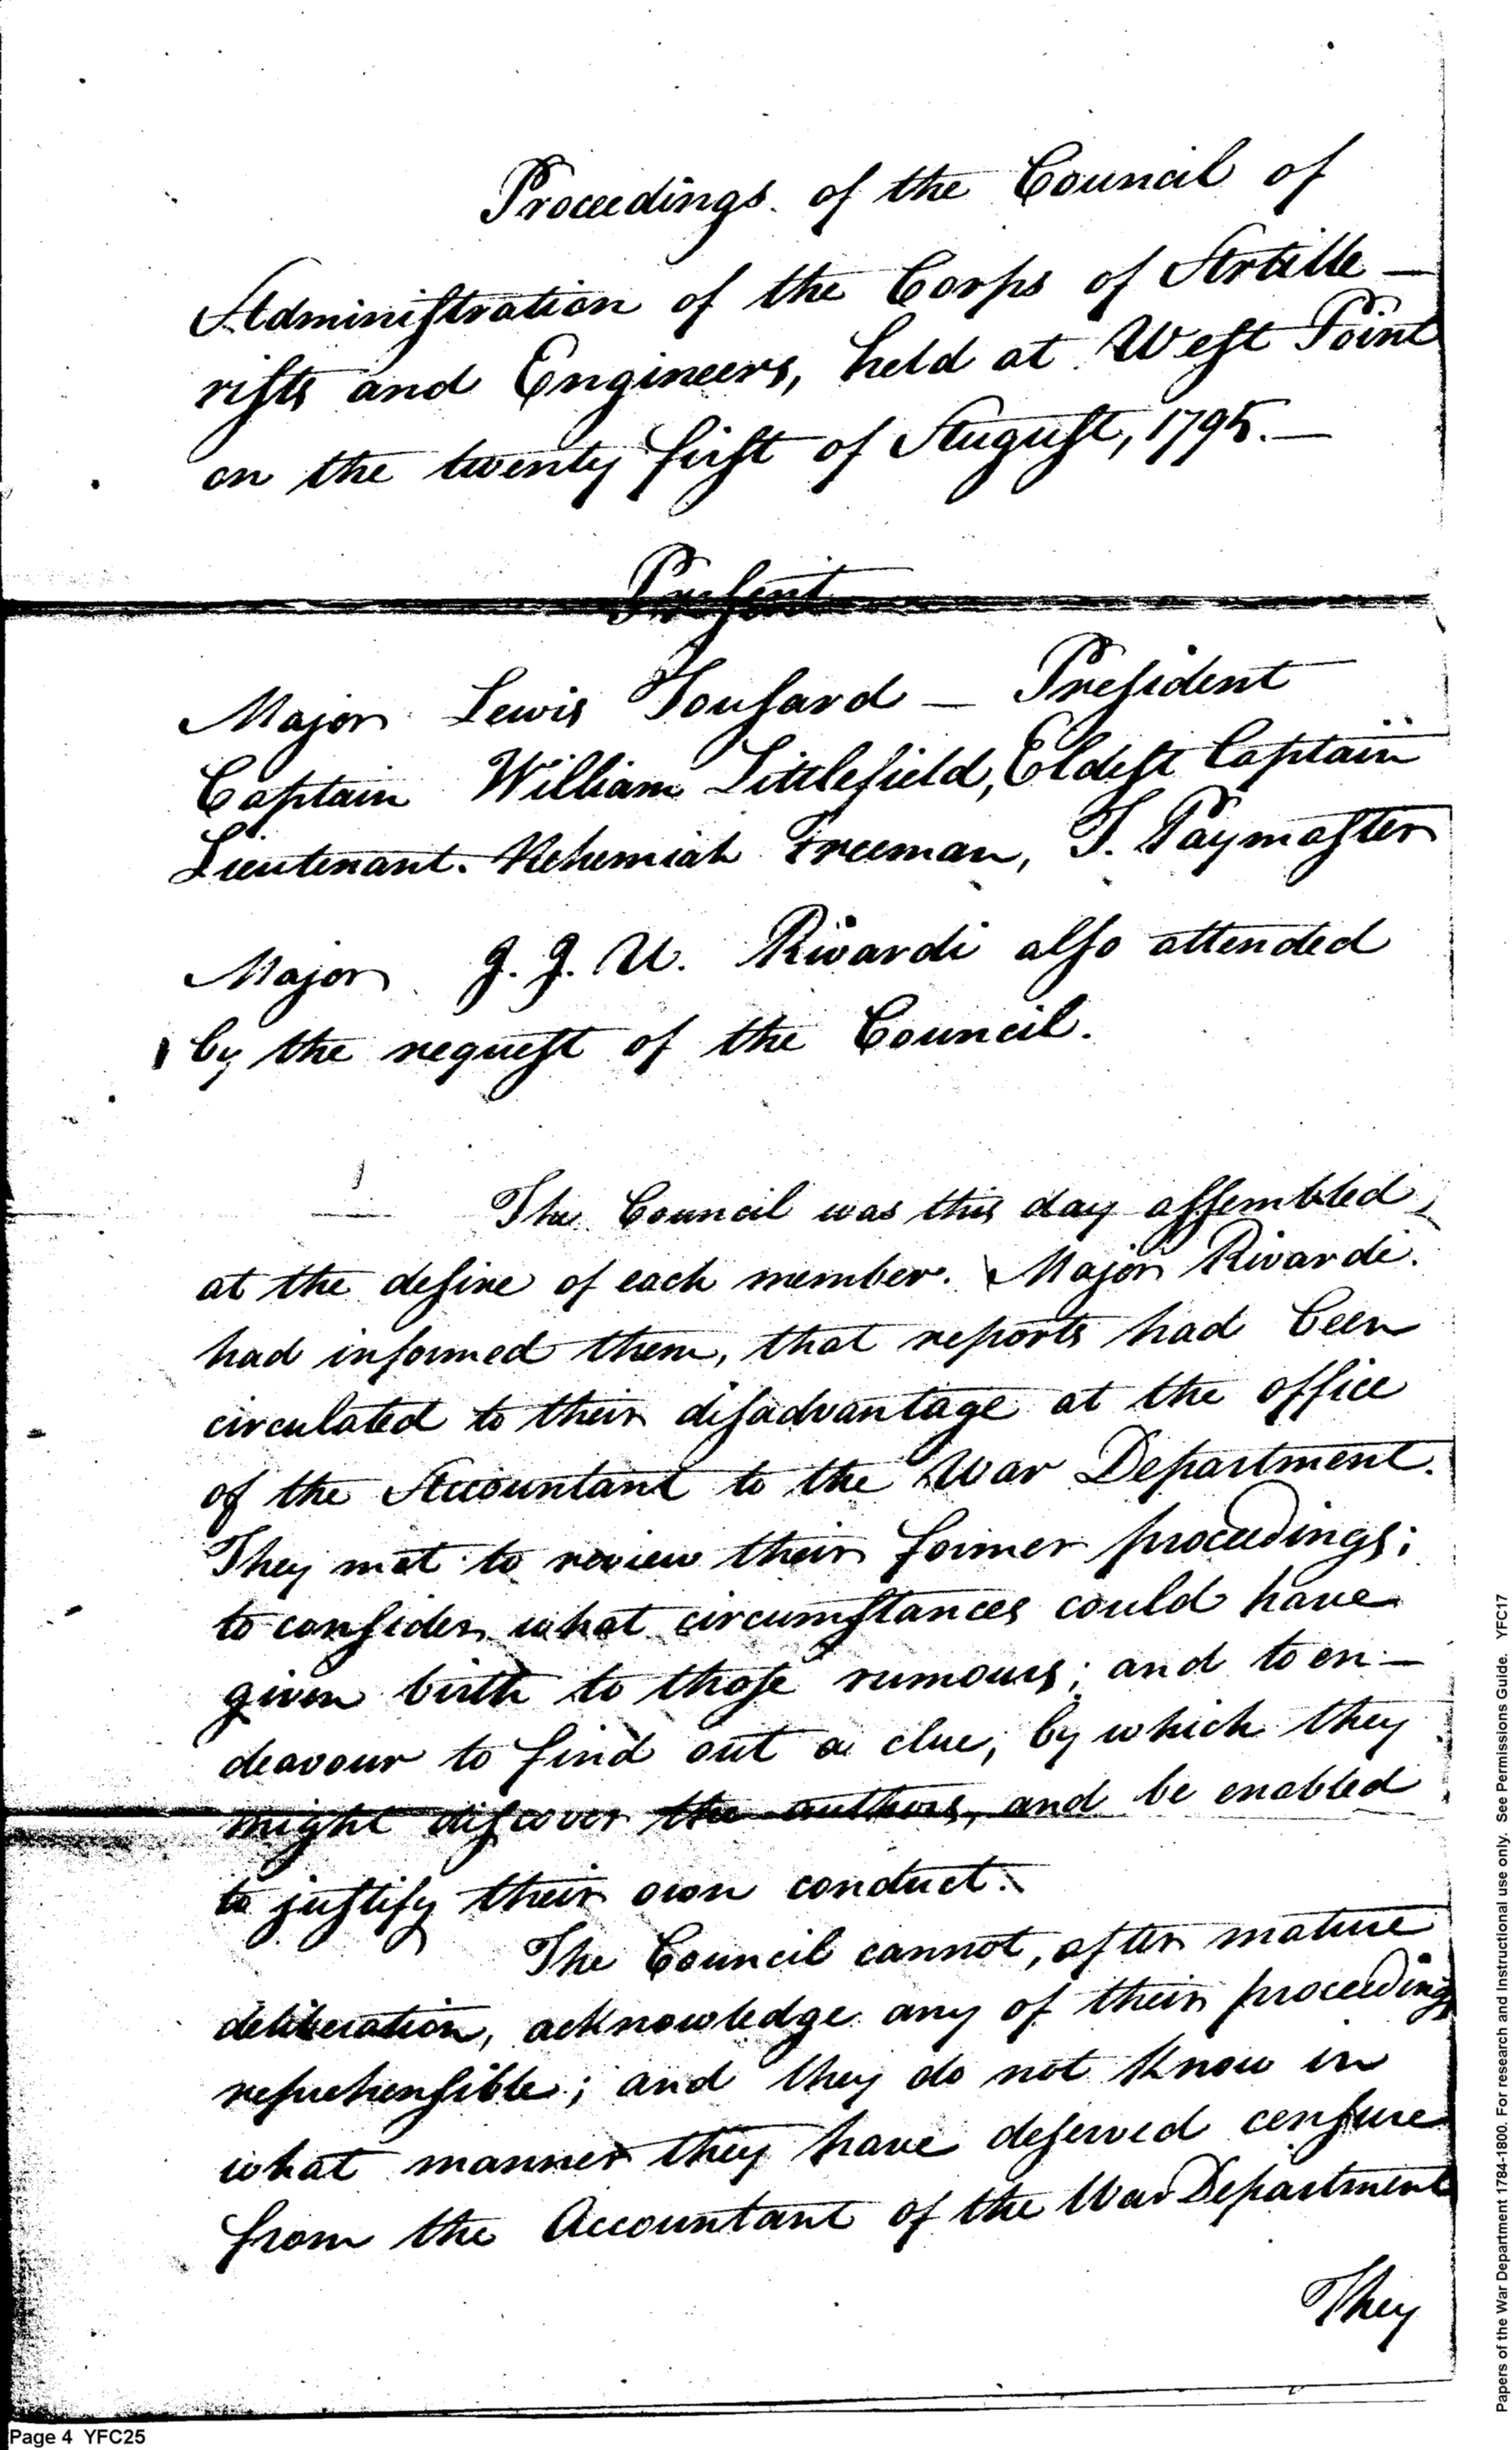 Proceedings of the Council of
Administration of the Corps of Artille—
rists and Engineers, held at West Point
on the twenty first of August, 1795.—
Present
Major Lewis Tousard — President
Captain William Littlefield, Eldest Captain
Lieutenant. Nehemiah Freeman, T. Paymaster
Major J. J. U. Rivardi also attended
by the request of the Council.
The Council was this day assembled,
at the desire of each member. Major Rivardi.
had informed them, that reports had been
circulated to their disadvantage at the office
of the Accountant to the War Department.
They met to review their former proceedings;
to consider what circumstances could have
given birth to those rumours; and to en—
deavour to find out a clue, by which they
might discover the authors, and be enabled
to justify their own conduct.
The Council cannot, after mature
deliberation, acknowledge any of their proceedings
reprehensible; and they do not know in
what manner they have deserved censure
from the Accountant of the War Department
They
Page 4 YFC25
Papers of the War Department 1784-1800. For research and instructional use only. See Permissions Guide. YFC17